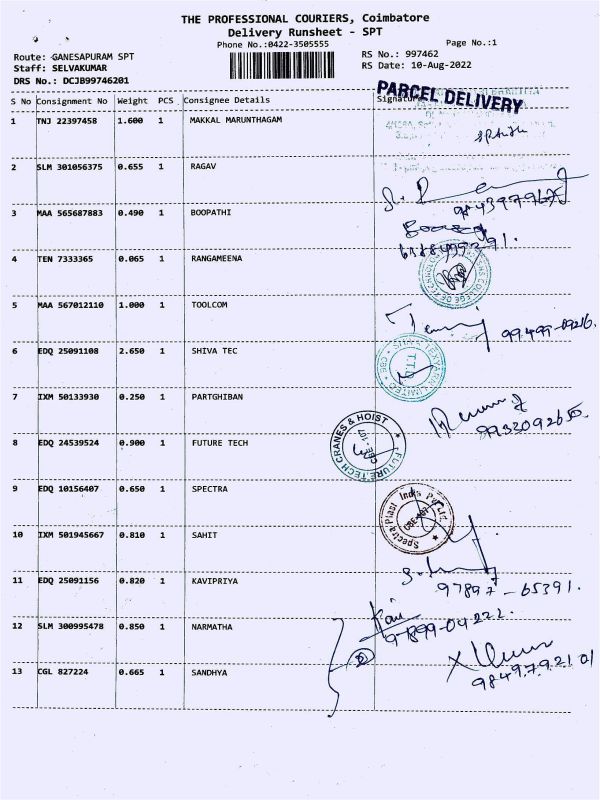 THE PROFESSIONAL COURIERS, Coimbatore
Delivery Runsheet - SPT
Phone No.:0422-3505555
Page No.:1
Route: GANESAPURAM SPT
RS No.: 997462
Staff: SELVAKUMAR
RS Date: 10-Aug-2022
DRS No.: DCJB99746201
PARCEL DELIVERY
S No Consignment No Weight PCS Consignee Details Signature
1 TNJ 22397458 1.600 1 MAKKAL MARUNTHAGAM
2 SLM 301056375 0.655 1 RAGAV
3 MAA 565687883 0.490 1 BOOPATHI
4 TEN 7333365 0.065 1 RANGAMEENA
5 MAA 567012110 1.000 1 TOOLCOM
99499-09216.
6 EDQ 25091108 2.650 1 SHIVA TEC
T.T.D
7 IXM 50133930 0.250 1 PARTGHIBAN
9932092650
8 EDQ 24539524 0.900 1 FUTURE TECH
FUTURE TECH CRANES & HOIST
CBE-107
9 EDQ 10156407 0.650 1 SPECTRA
Spectra Plast India Pvt Ltd
CBE-107
10 IXM 501945667 0.810 1 SAHIT
11 EDQ 25091156 0.820 1 KAVIPRIYA
97897-65391.
12 SLM 300995478 0.850 1 NARMATHA
97899-04222.
13 CGL 827224 0.665 1 SANDHYA
9849792101